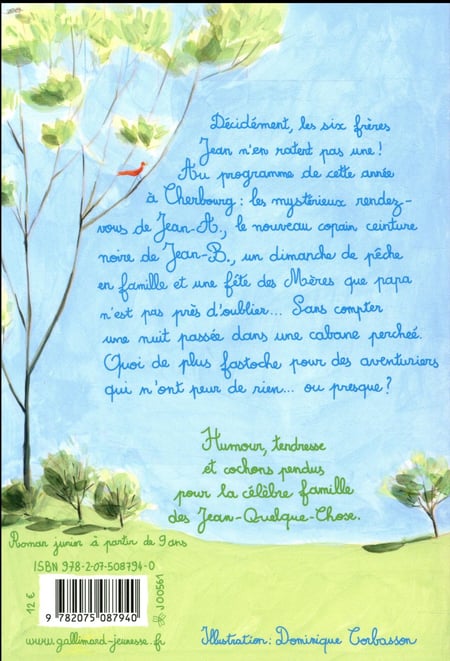 Décidément, les six frères
Jean n'en ratent pas une !
Au programme de cette année
à Cherbourg : les mystérieux rendez-
vous de Jean-A., le nouveau copain ceinture
noire de Jean-B., un dimanche de pêche
en famille et une fête des Mères que papa
n'est pas près d'oublier... Sans compter
une nuit passée dans une cabane perchée.
Quoi de plus fastoche pour des aventuriers
qui n'ont peur de rien... ou presque ?
Humour, tendresse
et cochons pendus
pour la célèbre famille
des Jean-Quelque-Chose.
Roman junior à partir de 9 ans
ISBN 978-2-07-508794-0
12 €
J00561
9 782075 087940
www.gallimard-jeunesse.fr
Illustration : Dominique Corbasson